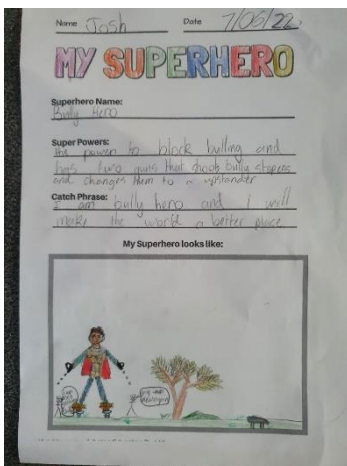 Name Josh Date 7/06/22
MY SUPERHERO
Superhero Name:
Bully Hero
Super Powers:
the power to block bulling and
has two guns that shoots bully stopers
and changes them to a upstander
Catch Phrase:
I am bully hero and I will
make the world a better place
My Superhero looks like: